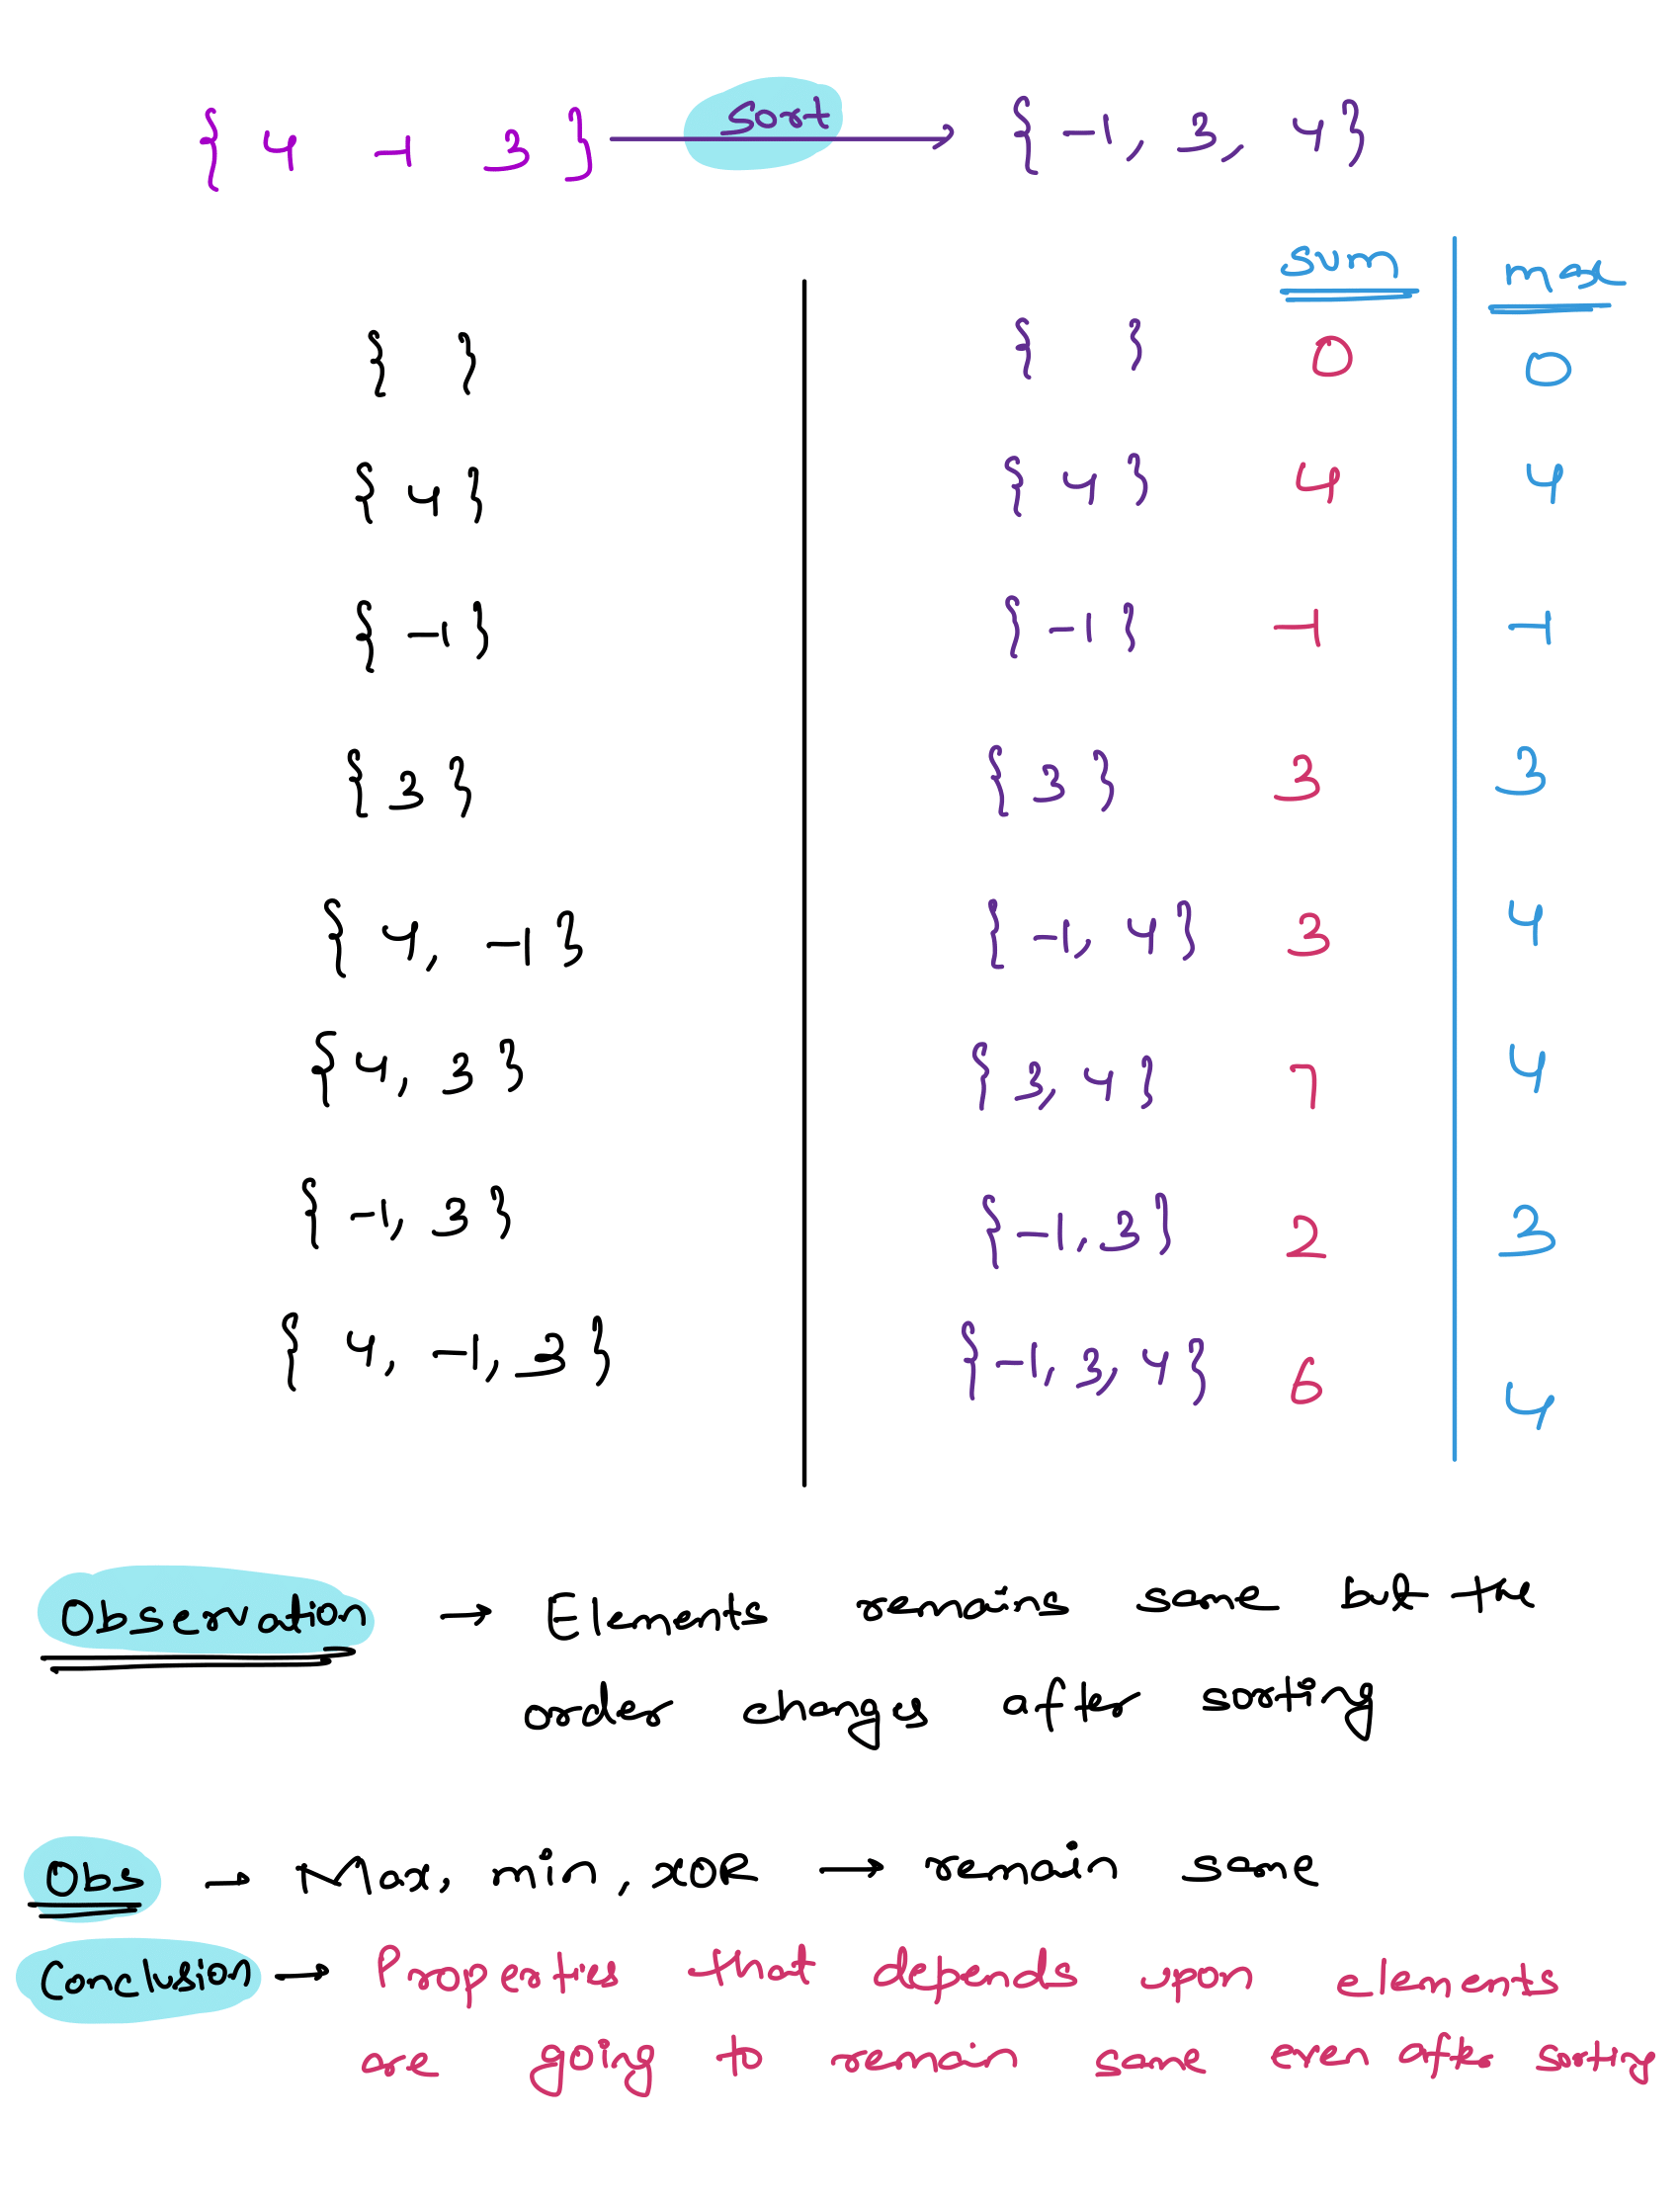 { 4 -1 3 } sort { -1, 3, 4 }
sum max
{ } { } 0 0
{ 4 } { 4 } 4 4
{ -1 } { -1 } -1 -1
{ 3 } { 3 } 3 3
{ 4, -1 } { -1, 4 } 3 4
{ 4, 3 } { 3, 4 } 7 4
{ -1, 3 } { -1, 3 } 2 3
{ 4, -1, 3 } { -1, 3, 4 } 6 4
Observation → Elements remains same but the
order changes after sorting
Obs → Max, min, XOR → remain same
Conclusion → Properties that depends upon elements
are going to remain same even after sorting